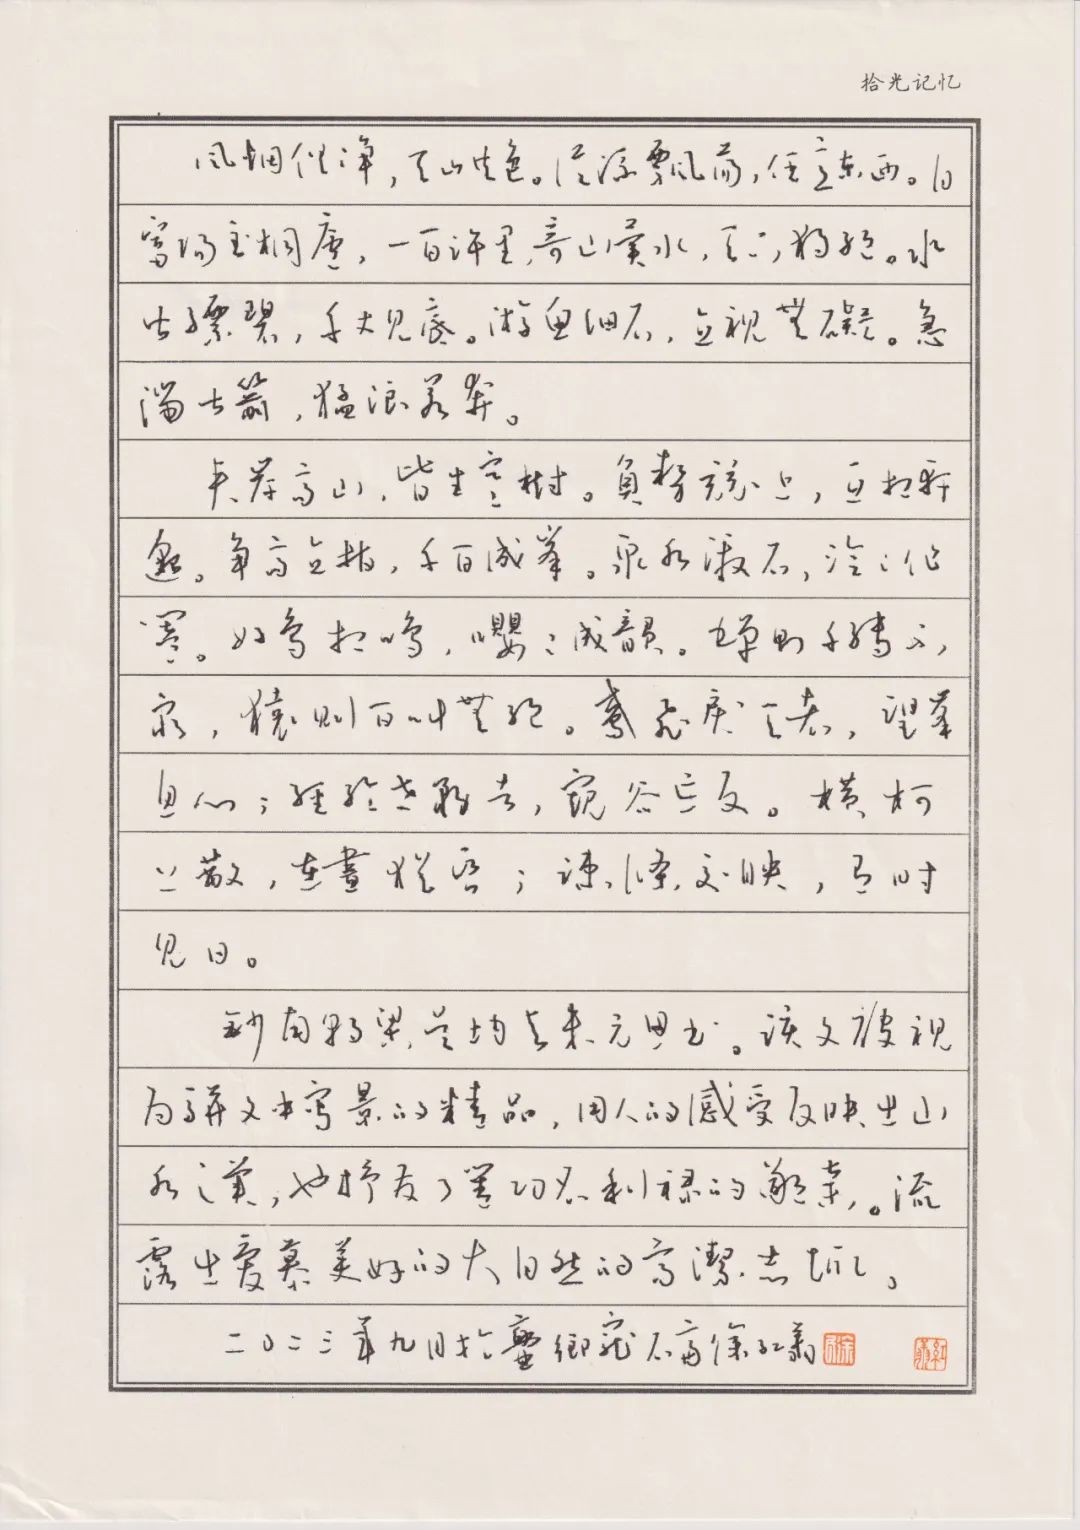 拾光记忆
风烟俱净，天山共色。从流飘荡，任意东西。自
富阳至桐庐，一百许里，奇山異水，天下独绝。水
皆缥碧，千丈见底。游鱼细石，直视無碍。急
湍甚箭，猛浪若奔。
夹岸高山，皆生寒树。負势競上，互相轩
邈。争高直指，千百成峯。泉水激石，泠泠作
響。好鸟相鸣，嚶嚶成韻。蝉则千转不
窮，猿则百叫無绝。鸢飛戾天者，望峯
息心；經纶世務者，窥谷忘反。横柯
上蔽，在晝猶昏；疎條交映，有时
见日。
鈔南朝梁吴均与朱元思书。该文被视
为骈文中寫景的精品，用人的感受反映出山
水之美，也抒发了對功名利禄的鄙棄。流
露出爱慕美好的大自然的高潔志趣。
二〇二三年九月於